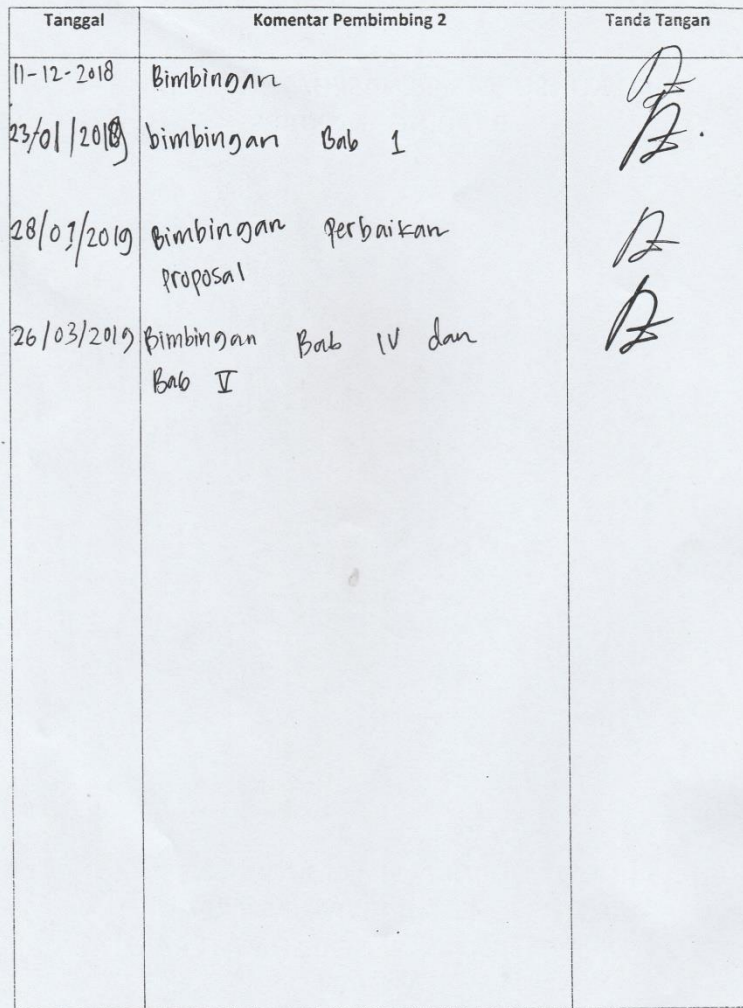 Tanggal Komentar Pembimbing 2 Tanda Tangan
11-12-2018 Bimbingan
23/01/2019 bimbingan Bab 1
28/01/2019 Bimbingan Perbaikan
Proposal
26/03/2019 Bimbingan Bab IV dan
Bab V